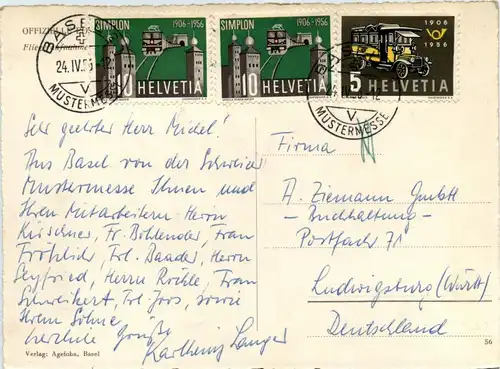 OFFIZIELLE
Flie
BASEL
24.IV.56.-12
V
MUSTERMESSE
SIMPLON 1906-1956
10 HELVETIA
SIMPLON 1906-1956
10 HELVETIA
1906
1956
5 HELVETIA
BASEL
24.IV.56.-12
V
MUSTERMESSE
Sehr geehrter Herr Michel!
Aus Basel von der Schweizer
Mustermesse Ihnen und
Ihren Mitarbeitern Herrn
Kirschner, Fr. Bohlender, Frau
Fröhlich, Frl. Baader, Herrn
Seyfried, Herrn Röhle, Frau
Schweikert, Frl. Joos, sowie
Ihrem Sohne
herzliche Grüße
Karlheinz Langer
Verlag: Agefoba, Basel
Firma
A. Ziemann GmbH
- Buchhaltung -
Postfach 71
Ludwigsburg (Württ)
Deutschland
56